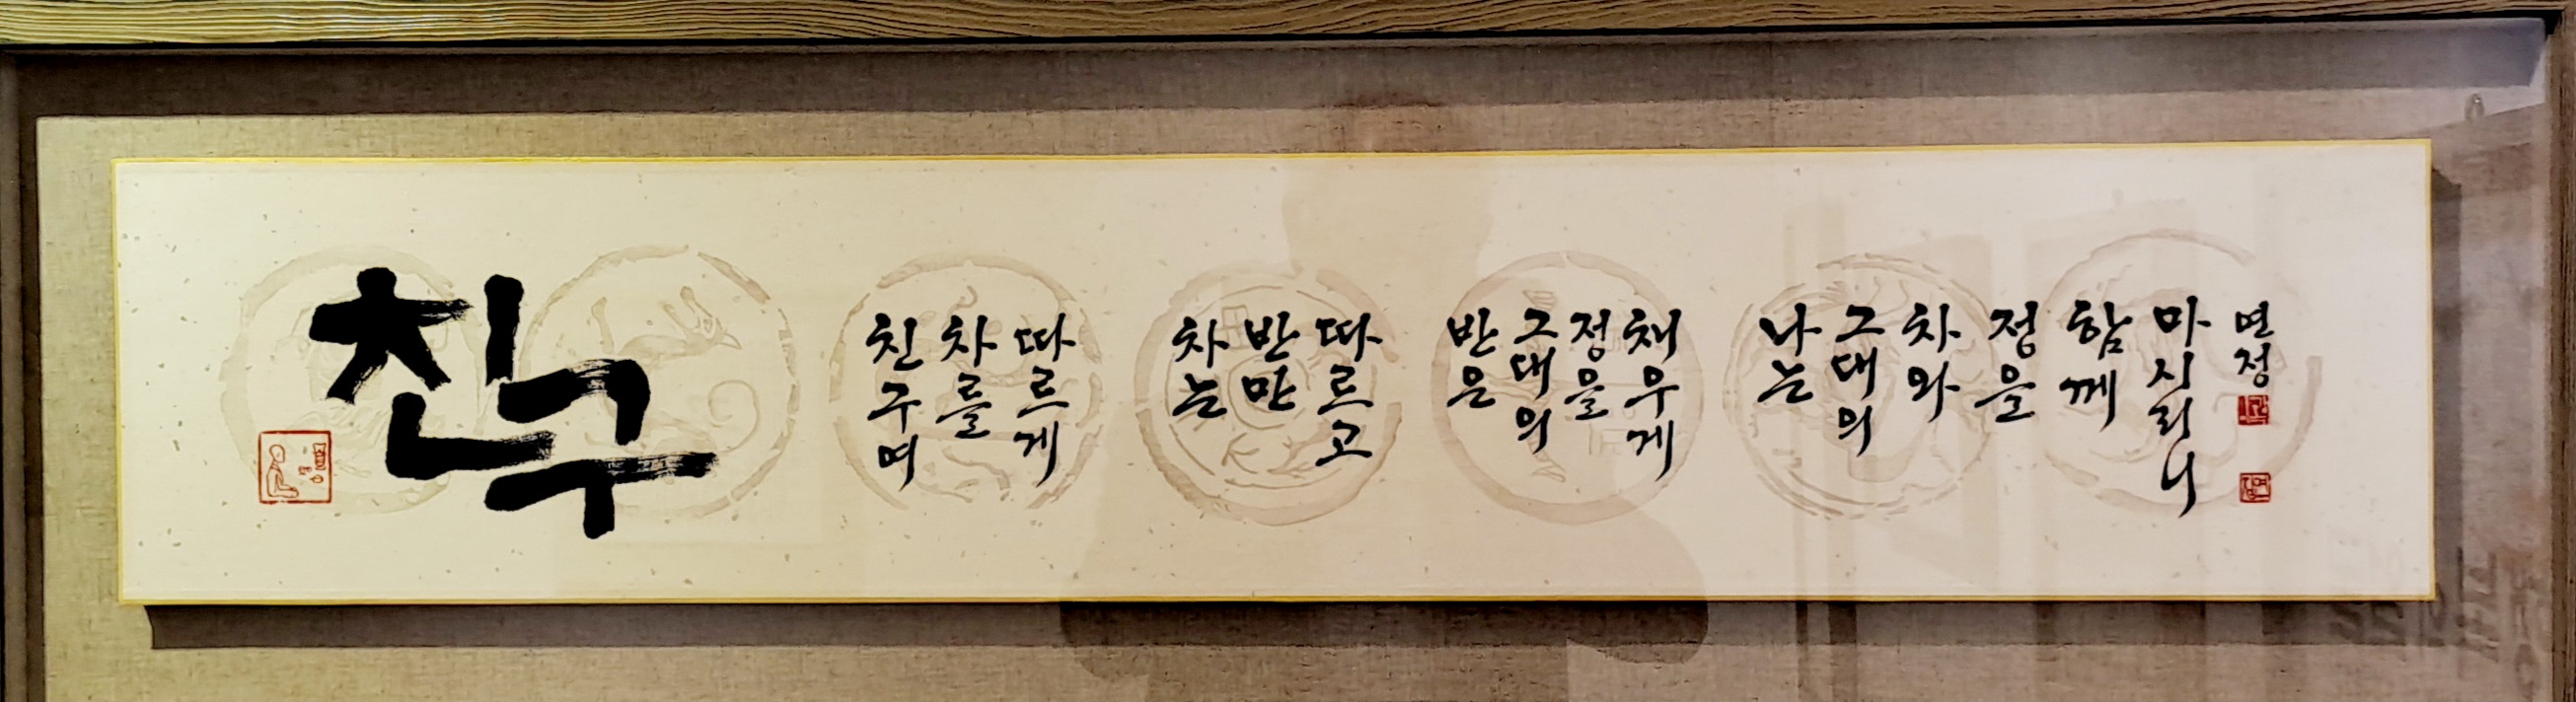 친구
친구여
차를
따르게
차는
반만
따르고
반은
그대의
정을
채우게
나는
그대의
차와
정을
함께
마시리니
면정